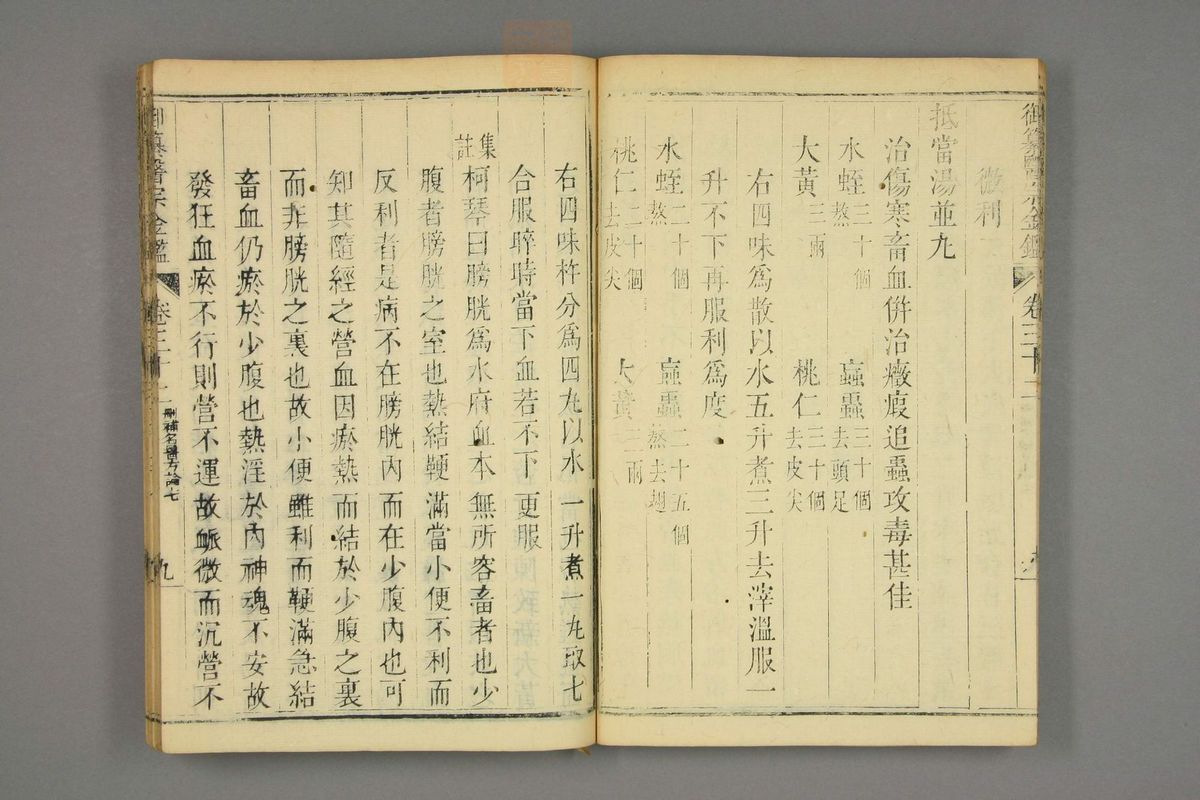 御纂醫宗金鑑
卷三十二
微利
抵當湯並丸
治傷寒畜血併治癥瘕追蟲攻毒甚佳
水蛭三十個熬 䖟蟲三十個去頭足
大黃三兩 桃仁三十個去皮尖
右四味為散以水五升煮三升去滓溫服一
升不下再服利為度
水蛭二十個熬 䖟蟲二十五個熬去翅
桃仁二十個去皮尖 大黃三兩
右四味杵分為四丸以水一升煮一丸取七
合服晬時當下血若不下更服
集註
柯琴曰膀胱為水府血本無所容畜者也少
腹者膀胱之室也熱結鞕滿當小便不利而
反利者是病不在膀胱內而在少腹內也可
知其隨經之營血因瘀熱而結於少腹之裏
而非膀胱之裏也故小便雖利而鞕滿急結
畜血仍瘀於少腹也熱淫於內神魂不安故
發狂血瘀不行則營不運故脈微而沉營不
御纂醫宗金鑑
卷三十二
刪補名醫方論七
九